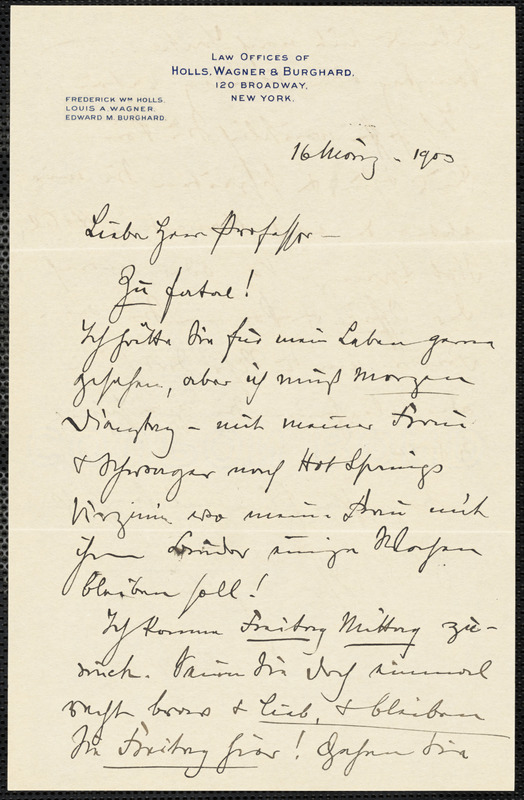 LAW OFFICES OF
HOLLS, WAGNER & BURGHARD,
120 BROADWAY,
NEW YORK.
FREDERICK WM HOLLS.
LOUIS A. WAGNER.
EDWARD M. BURGHARD.
16 März. 1903
Lieber Herr Professor –
Zu fatal!
Ich hätte Sie für mein Leben gerne
gesehen, aber ich muß morgen
Dienstag – mit meiner Frau
& Schwager nach Hot Springs
Virginia wo meine Frau mit
ihrem Bruder einige Wochen
bleiben soll!
Ich komme Freitag Mittag zu-
rück. Seien Sie doch einmal
recht brav & lieb, & bleiben
Sie Freitag hier! Gehen Sie